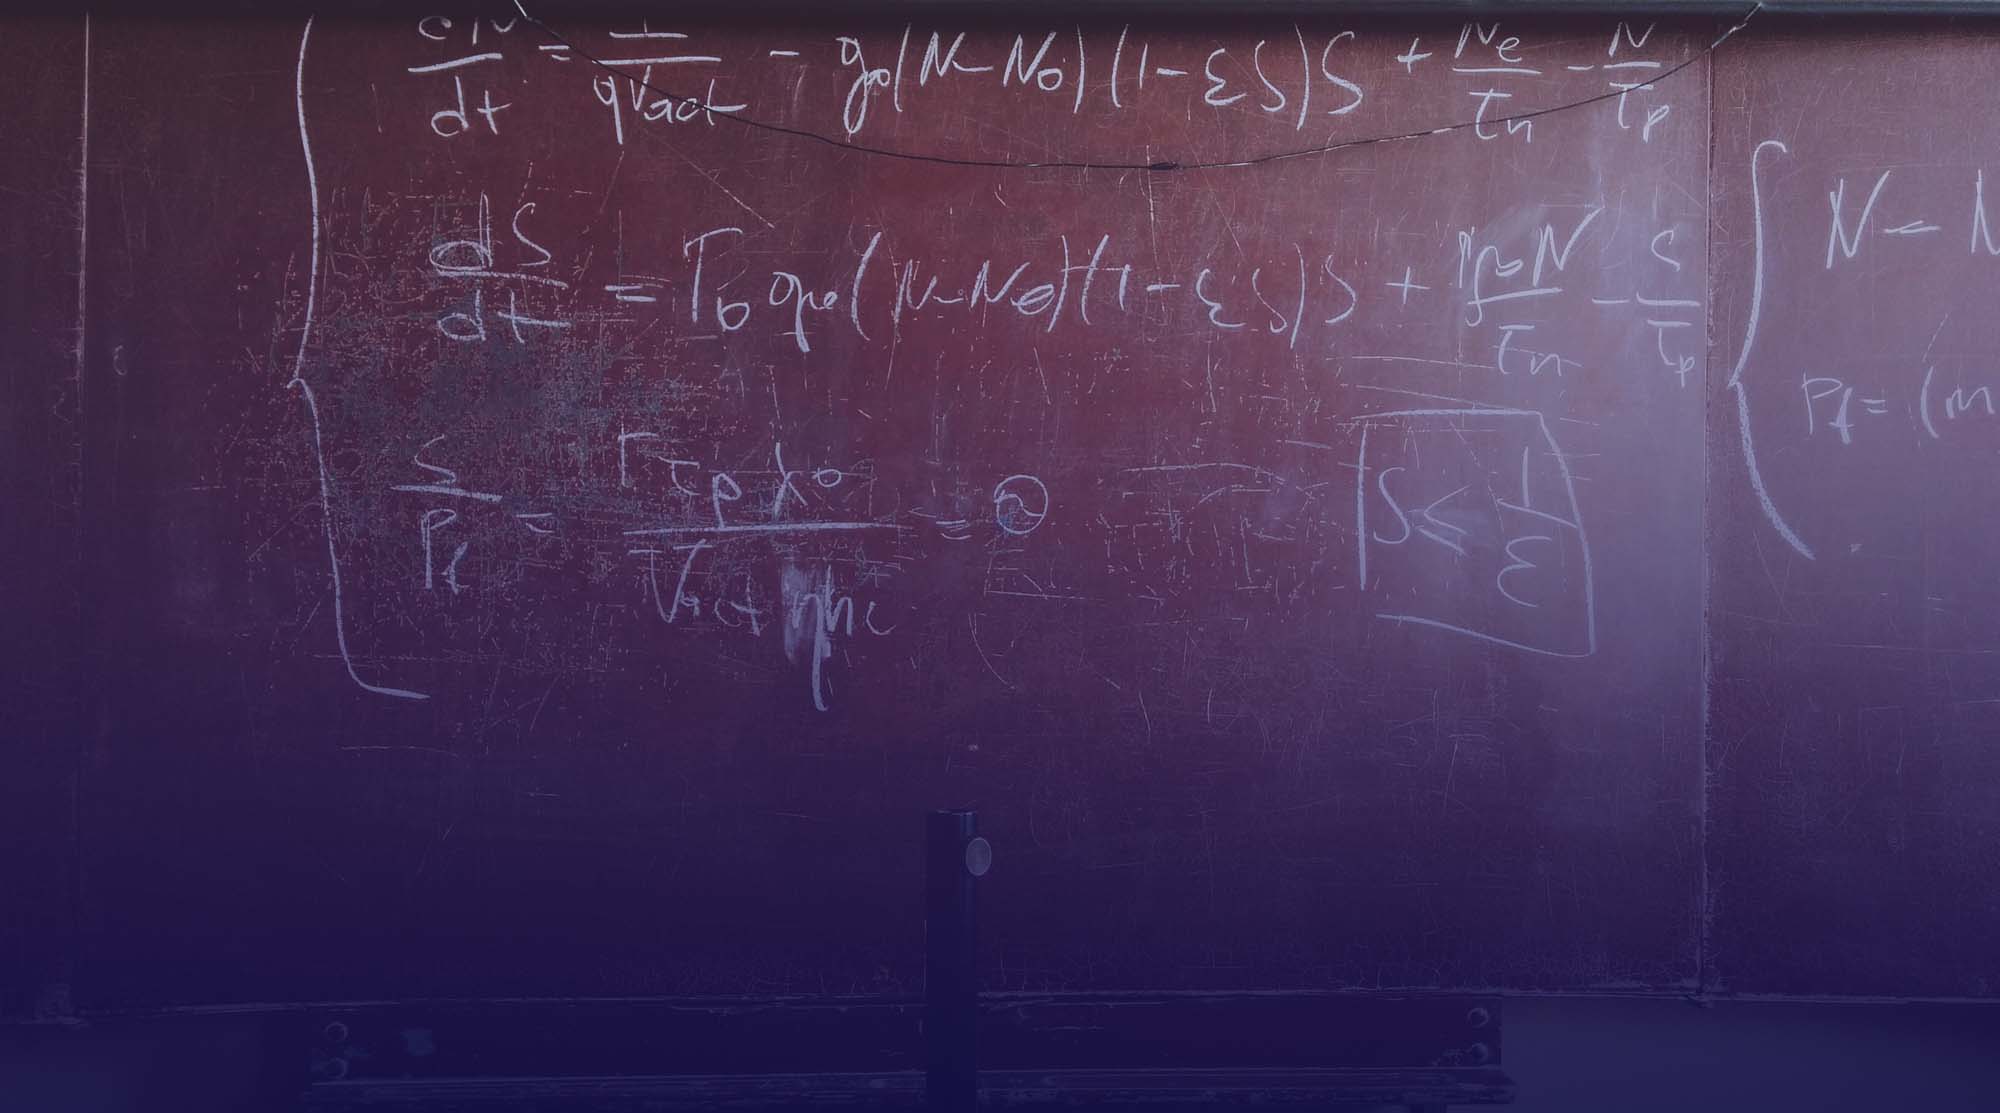 dN/dt = I/(qVact) - g0(N-N0)(1-εS)S + Ne/τn - N/τp
dS/dt = Γ0 g0(N-N0)(1-εS)S + N/τn - S/τp
S/Pf = Γτpλ0/(Vact ηhc) = ②
S ≤ 1/ε
N - N
Pf = (m